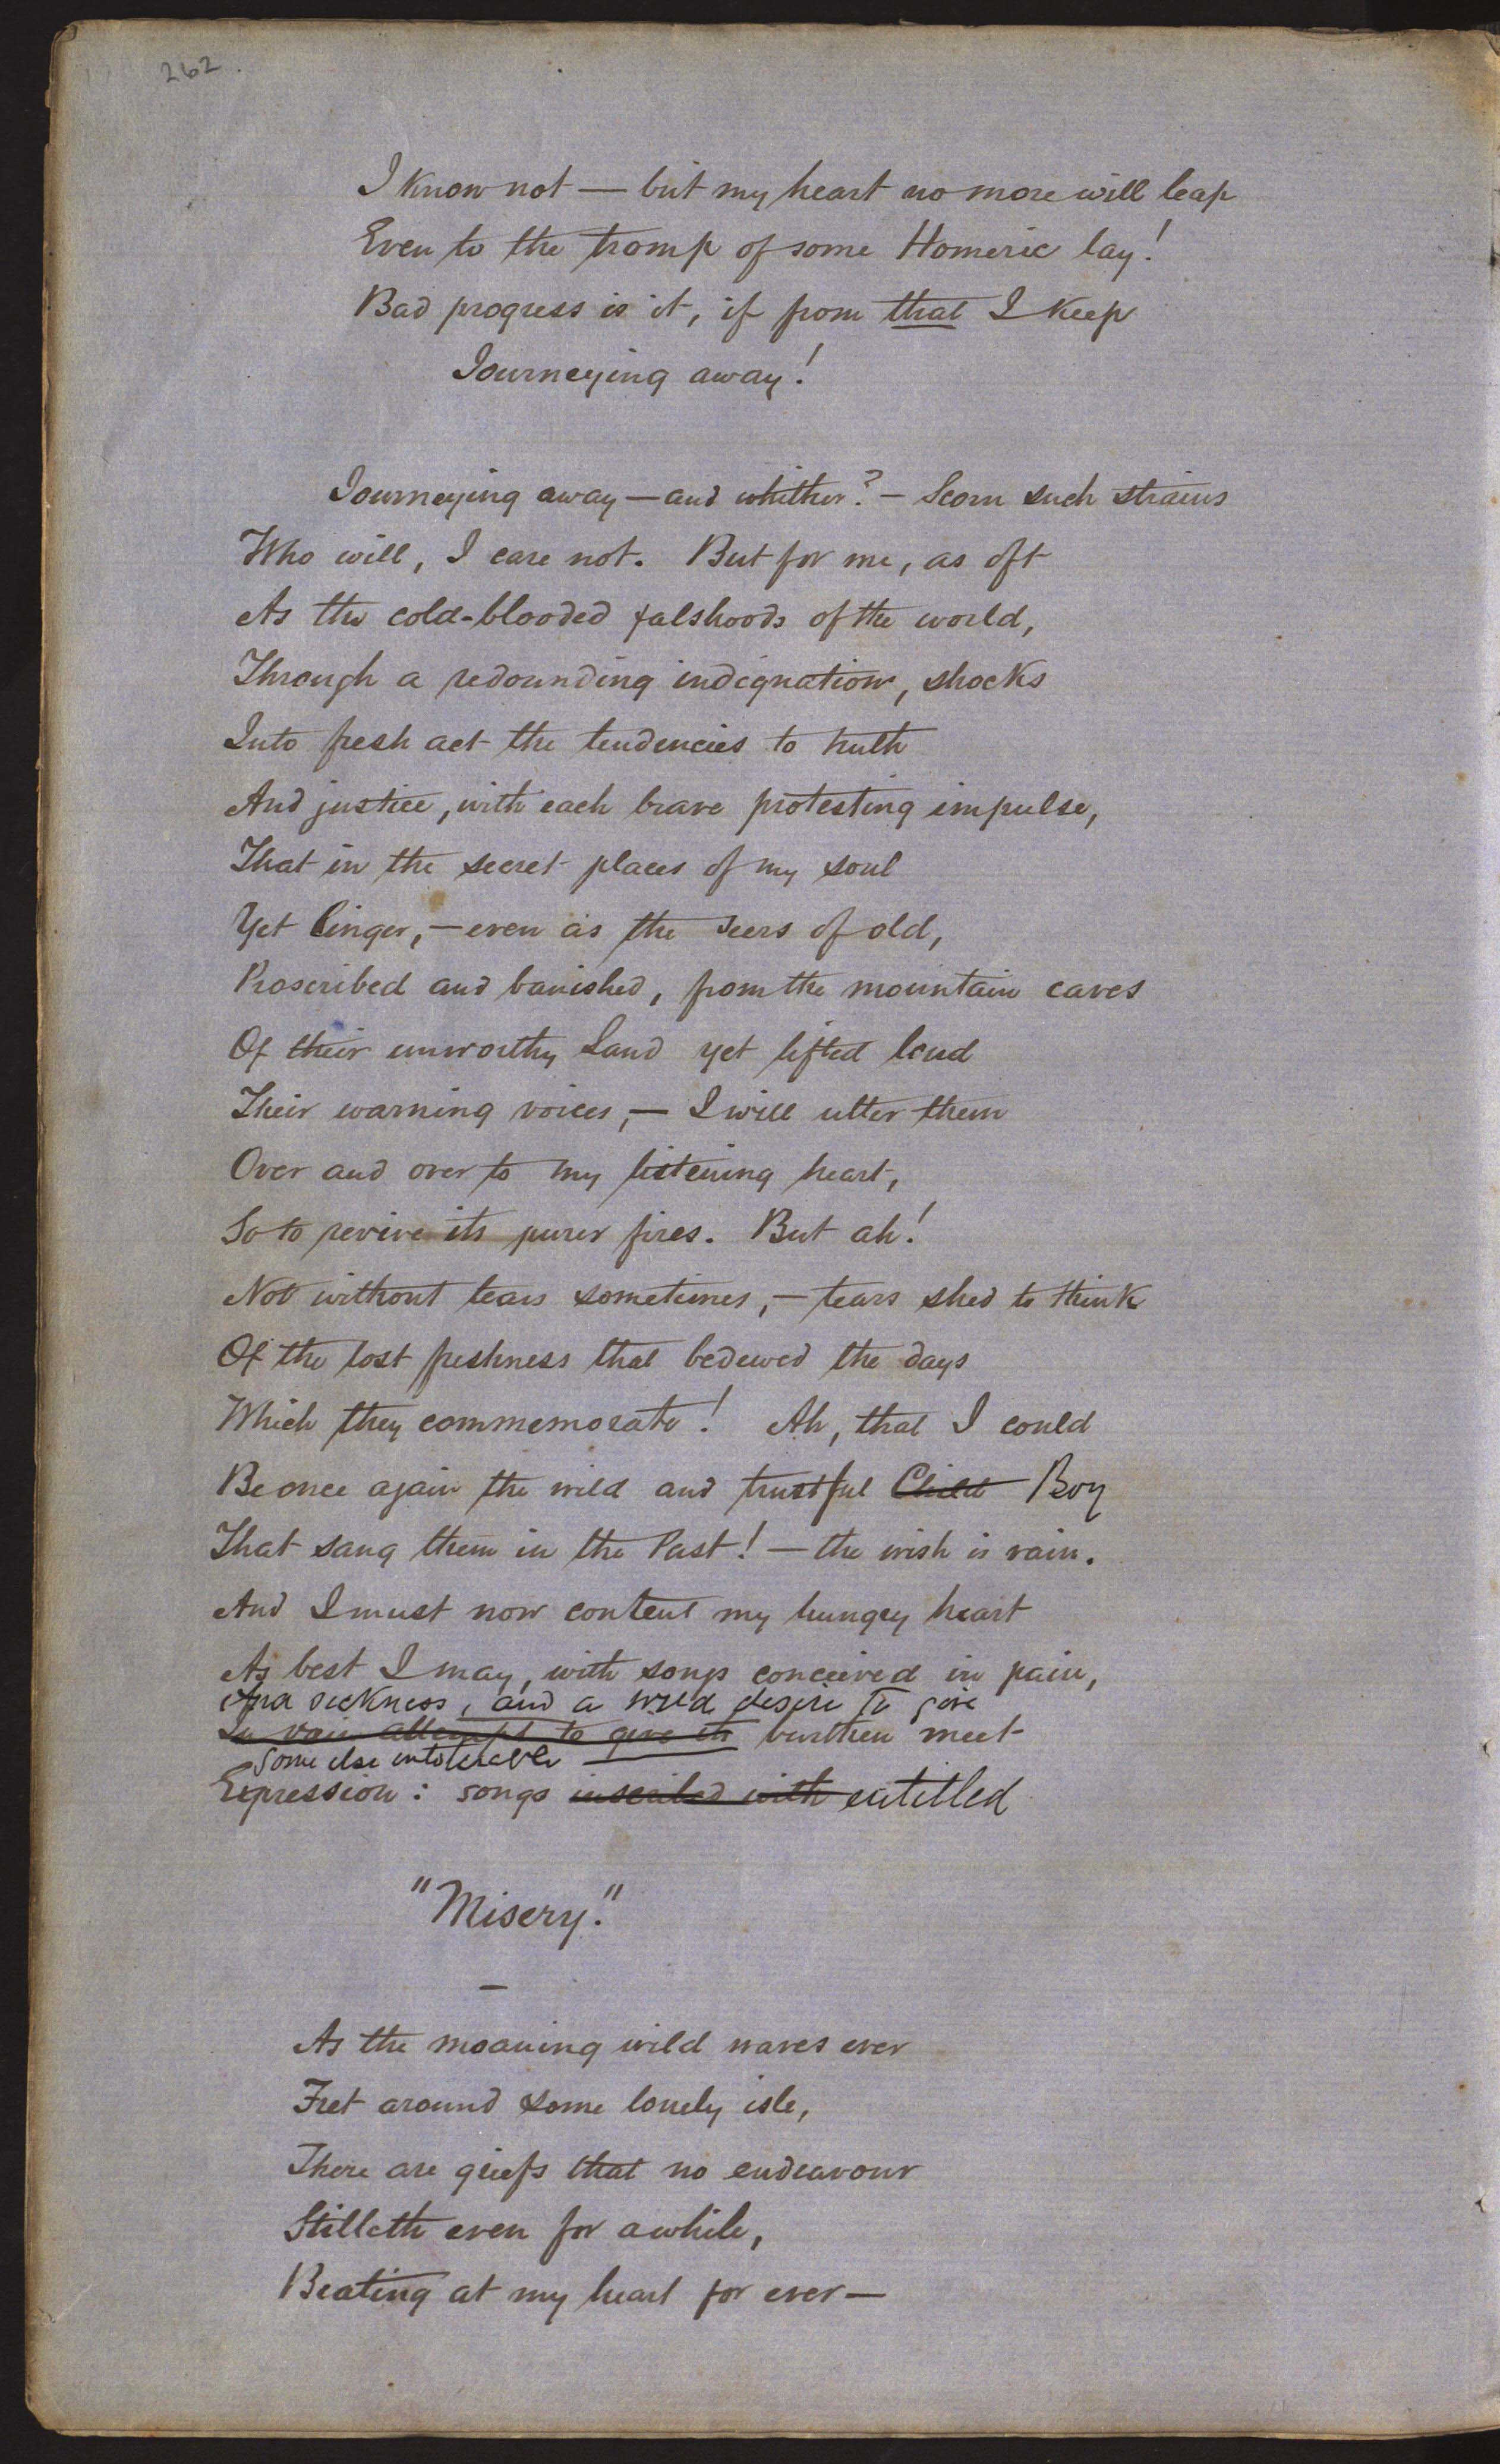 262.
I know not — but my heart no more will leap
Even to the tromp of some Homeric lay!
Bad progress is it, if from that I keep
Journeying away!
Journeying away — and whither? — Scorn such strains
Who will, I care not. But for me, as oft
As the cold-blooded falshoods of the world,
Through a redounding indignation, shocks
Into fresh act the tendencies to truth
And justice, with each brave protesting impulse,
That in the secret places of my soul
Yet linger, — even as the seers of old,
Proscribed and banished, from the mountain caves
Of their unworthy Land yet lifted loud
Their warning voices, — I will utter them
Over and over to my listening heart,
So to revive its purer fires. But ah!
Not without tears sometimes, — tears shed to think
Of the lost freshness that bedewed the days
Which they commemorate! Ah, that I could
Be once again the wild and trustful Child Boy
That sang them in the Past! — the wish is vain.
And I must now content my hungry heart
As best I may, with songs conceived in pain,
And sickness, and a wild desire to give
In vain attempt to give its burthen meet
Some else intolerable
Expression: songs inscribed with entitled
"Misery."
—
As the moaning wild waves ever
Fret around some lonely isle,
There are griefs that no endeavour
Stilleth even for awhile,
Beating at my heart for ever —